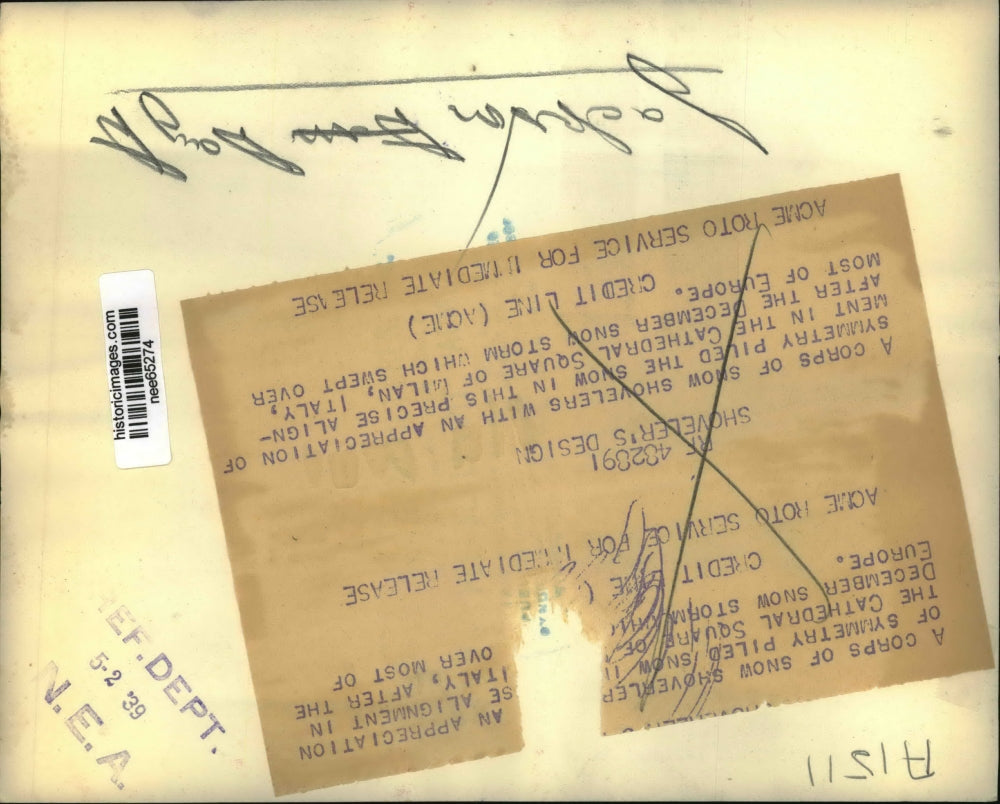 A1511
A CORPS OF SNOW SHOVELER AN APPRECIATION
OF SYMMETRY PILED SNOW ALIGNMENT IN
THE CATHEDRAL SQUARE OF ITALY, AFTER THE
DECEMBER SNOW STORM OVER MOST OF
EUROPE.
CREDIT
ACME ROTO SERVICE FOR IMMEDIATE RELEASE
RF 482891
SHOVELER'S DESIGN
A CORPS OF SNOW SHOVELERS WITH AN APPRECIATION OF
SYMMETRY PILED THE SNOW IN THIS PRECISE ALIGN-
MENT IN THE CATHEDRAL SQUARE OF MILAN, ITALY,
AFTER THE DECEMBER SNOW STORM WHICH SWEPT OVER
MOST OF EUROPE.
CREDIT LINE (ACME)
ACME ROTO SERVICE FOR IMMEDIATE RELEASE
Jackson
historicimages.com
nee65274
REF. DEPT.
5-2 '39
N. E. A.